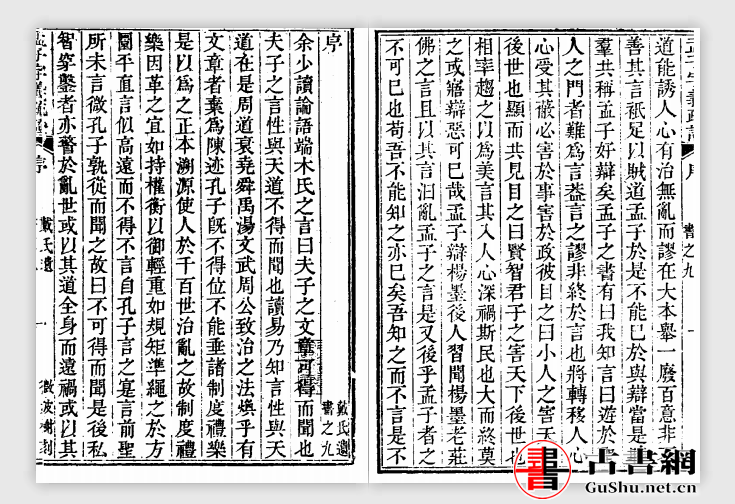 序
戴氏遺
書之九
余少讀論語端木氏之言曰夫子之文章可得而聞也
夫子之言性與天道不得而聞也讀易乃知言性與天
道在是周道衰堯舜禹湯文武周公致治之法煥乎有
文章者棄爲陳迹孔子旣不得位不能垂諸制度禮樂
是以爲之正本溯源使人於千百世治亂之故制度禮
樂因革之宜如持權衡以御輕重如規矩準繩之於方
圜平直言似高遠而不得不言自孔子言之寔言前聖
所未言微孔子孰從而聞之故曰不可得而聞是後私
智穿鑿者亦警於亂世或以其道全身而遠禍或以其
序 戴氏遺 一 微波榭刻
道能誘人心有治無亂而謬在大本舉一廢百意非不
善其言祇足以賊道孟子於是不能已於與辯當是時
羣共稱孟子好辯矣孟子之書有曰我知言曰遊於聖
人之門者難爲言葢言之謬非終於言也將轉移人心
心受其蔽必害於事害於政彼目之曰小人之害天下
後世也顯而共見目之曰賢智君子之害天下後世也
相率趨之以爲美言其入人心深禍斯民也大而終莫
之或寤辯惡可已哉孟子辯楊墨後人習聞楊墨老莊
佛之言且以其言汨亂孟子之言是又後乎孟子者之
不可已也苟吾不能知之亦已矣吾知之而不言是不
書之九 一
古書網
GuShu.net.cn